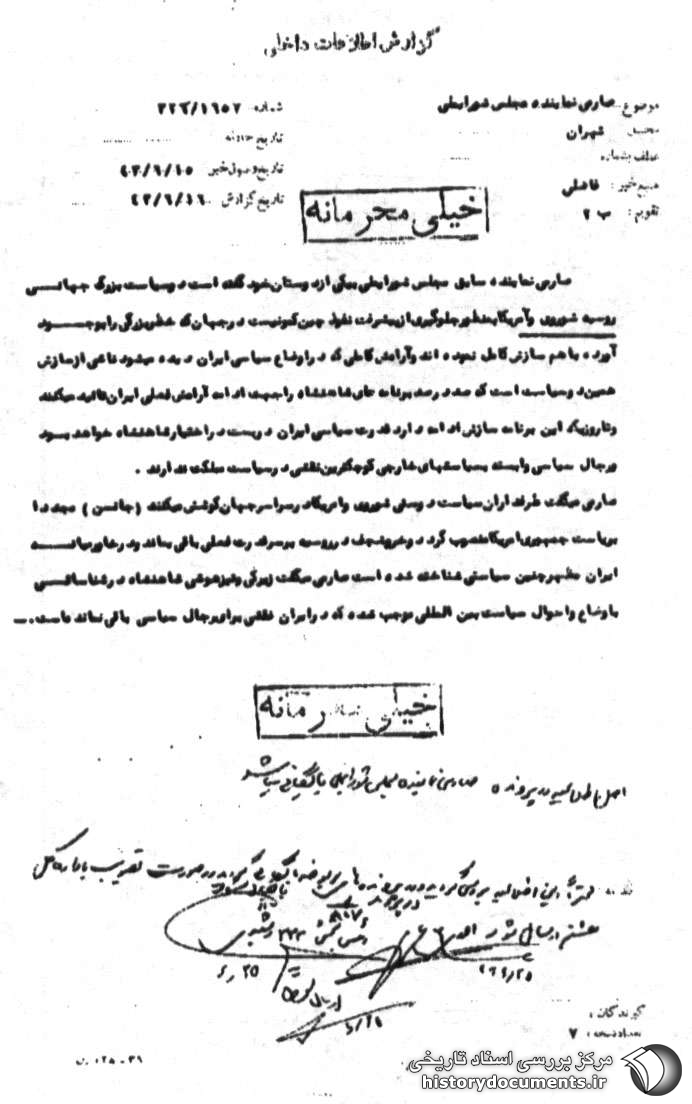 گزارش اطلاعات داخلی
موضوع : صارمی نماینده مجلس شورایملی
شماره : ۳۲۲/۱۶۵۷
محل : تهران
تاریخ حادثه
عطف بشماره
تاریخ وصول خبر ۴۳/۶/۱۵
منبع خبر : فاضلی
تاریخ گزارش ۴۳/۶/۱۶
تقویم : ب ۲
خیلی محرمانه
صارمی نماینده سابق مجلس شورایملی بیکی از دوستان خود گفته است دوسیاست بزرگ جهانی
روسیه شوروی وآمریکا بمنظور جلوگیری از پیشرفت نفوذ چین کمونیست در جهان که خطر بزرگی را بوجود
آورده باهم سازش کامل نموده اند وآرامش کاملی که در اوضاع سیاسی ایران دیده میشود ناشی از سازش
همین دوسیاست است که صد در صد برنامه های شاهنشاه را جهت ادامه آرامش فعلی ایران تائید میکنند
وتاروزیکه این برنامه سازش ادامه دارد قدرت سیاسی ایران دربست در اختیار شاهنشاه خواهد بود
ورجال سیاسی وابسته بسیاستهای خارجی کوچکترین نقشی در سیاست مملکت ندارند .
صارمی میگفت طرفداران سیاست دوستی شوروی وامریکا در سراسر جهان کوشش میکنند (جانسن) مجددا
بریاست جمهوری امریکا منصوب گردد وخروشچف در روسیه بر سر قدرت فعلی باقی بماند ودر خاورمیانه
ایران مظهر چنین سیاستی شناخته شده است صارمی میگفت زیرکی وتیزهوشی شاهنشاه در شناسائی
باوضاع واحوال سیاست بین المللی موجب شده که در ایران نقشی برای رجال سیاسی باقی نمانده است.ــ
خیلی محرمانه
اصل باطلاعیه در پرونده صارمی نماینده مجلس شورایملی بایگانی میباشد
ارسال شود
۶/۲۵
۶/۲۵
گیرندگان :
تعداد نسخه : ۷
مرکز بررسی اسناد تاریخی
historydocuments.ir